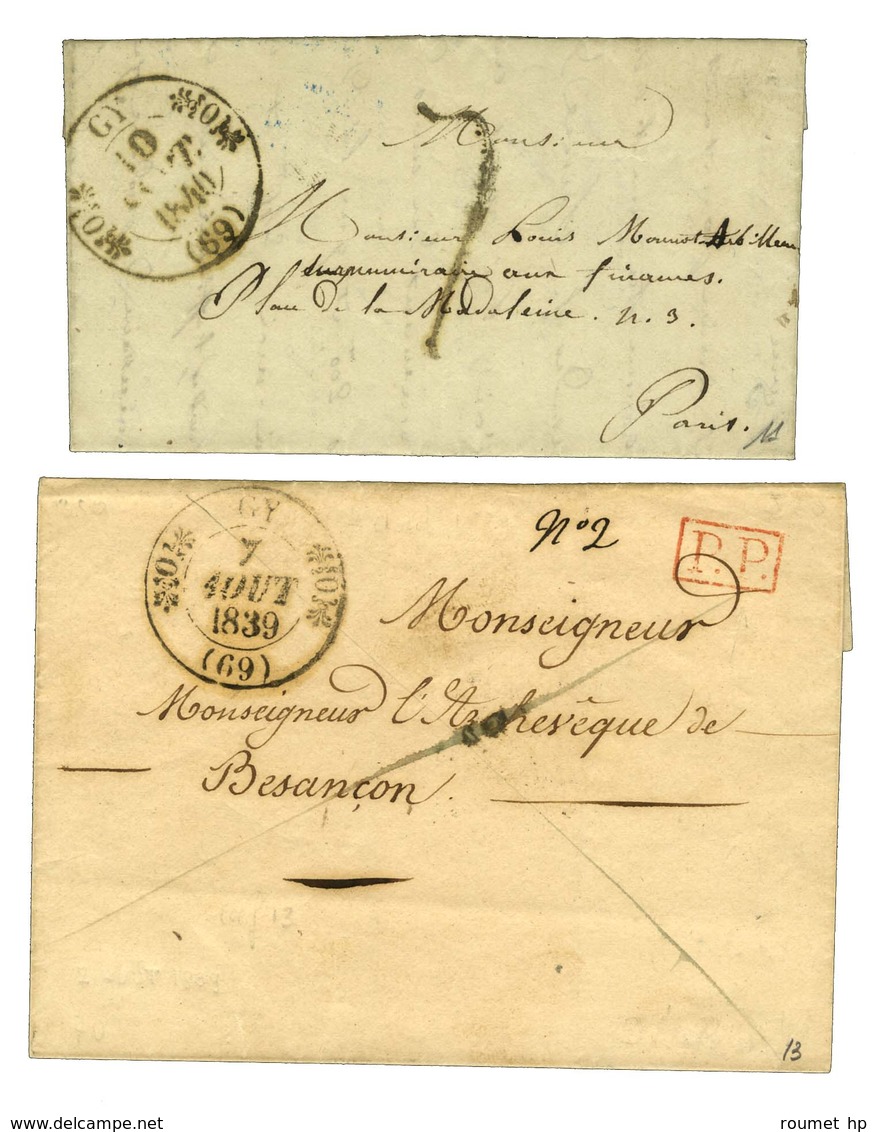 GY
10
1840
(69)
7
Monsieur
Monsieur Louis
surnumeraire aux finances.
Place de la Madeleine. n. 3.
Paris.
11
GY
7
AOUT
1839
(69)
N° 2
P.P.
Monseigneur
Monseigneur l'Archevêque de
Besançon.
13
roumet hp